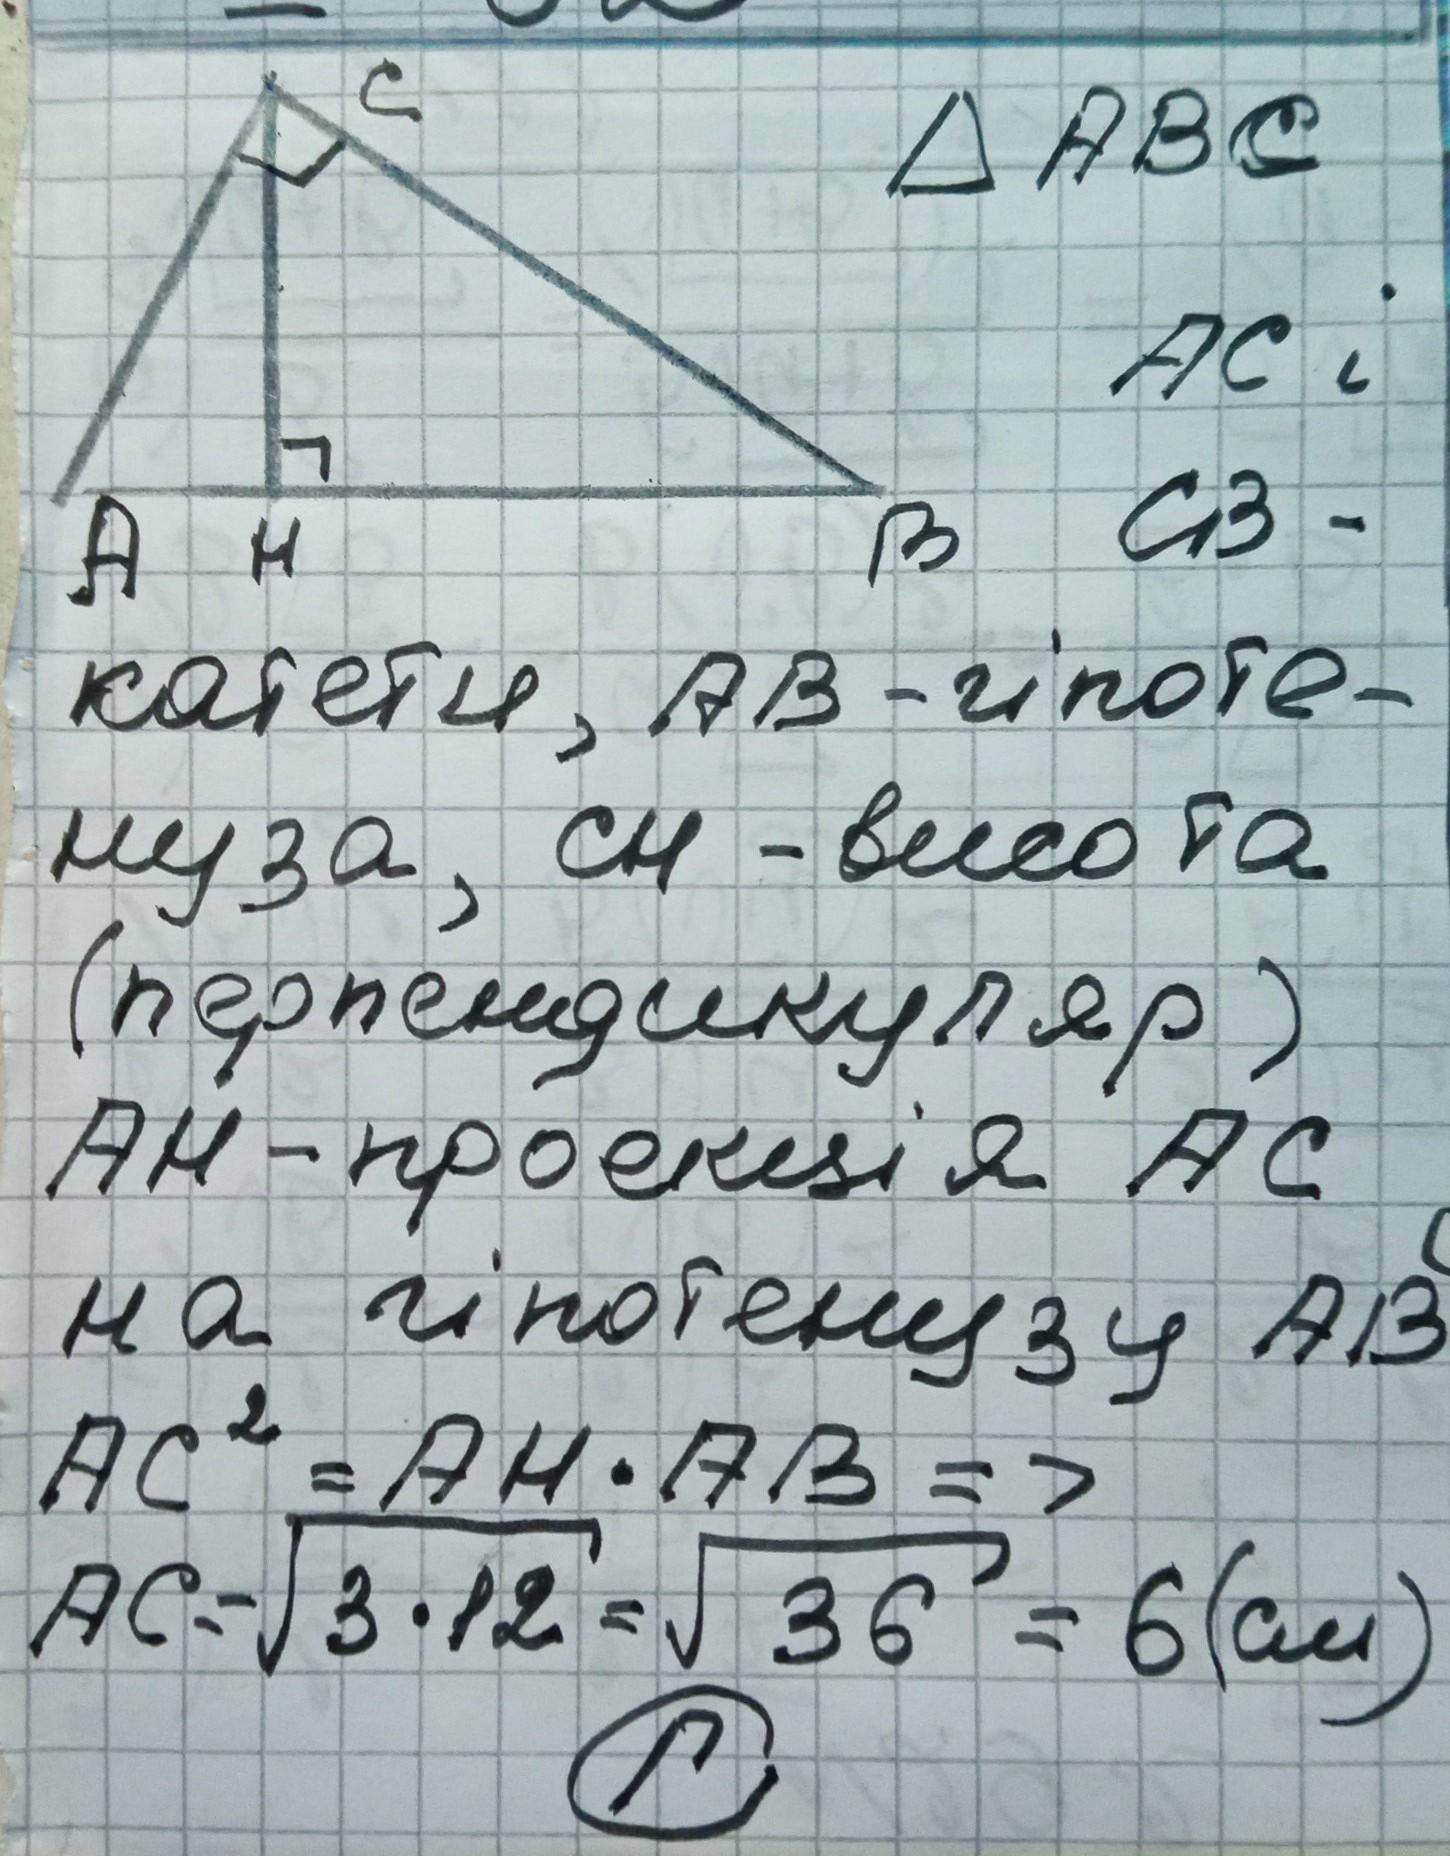 C
△ ABC
AC і
A H B CB -
катети, AB - гіпоте-
нуза, CH - висота
(перпендикуляр)
AH - проекція AC
на гіпотенузу AB
AC² = AH · AB =>
AC = √3·12 = √36 = 6 (см)
Г